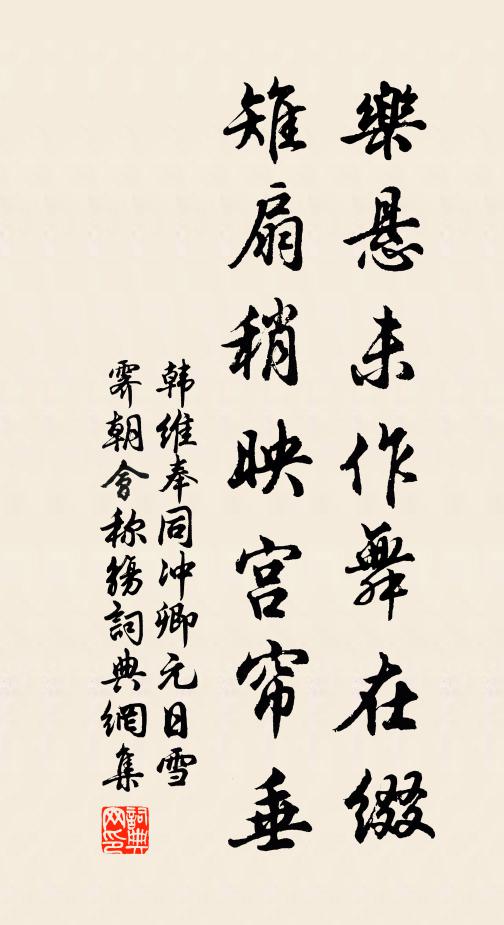 樂懸未作舞在綴
雉扇稍映宫帘垂
韩維奉同冲卿元日雪
霁朝會称觞詞典網集
詞典網印